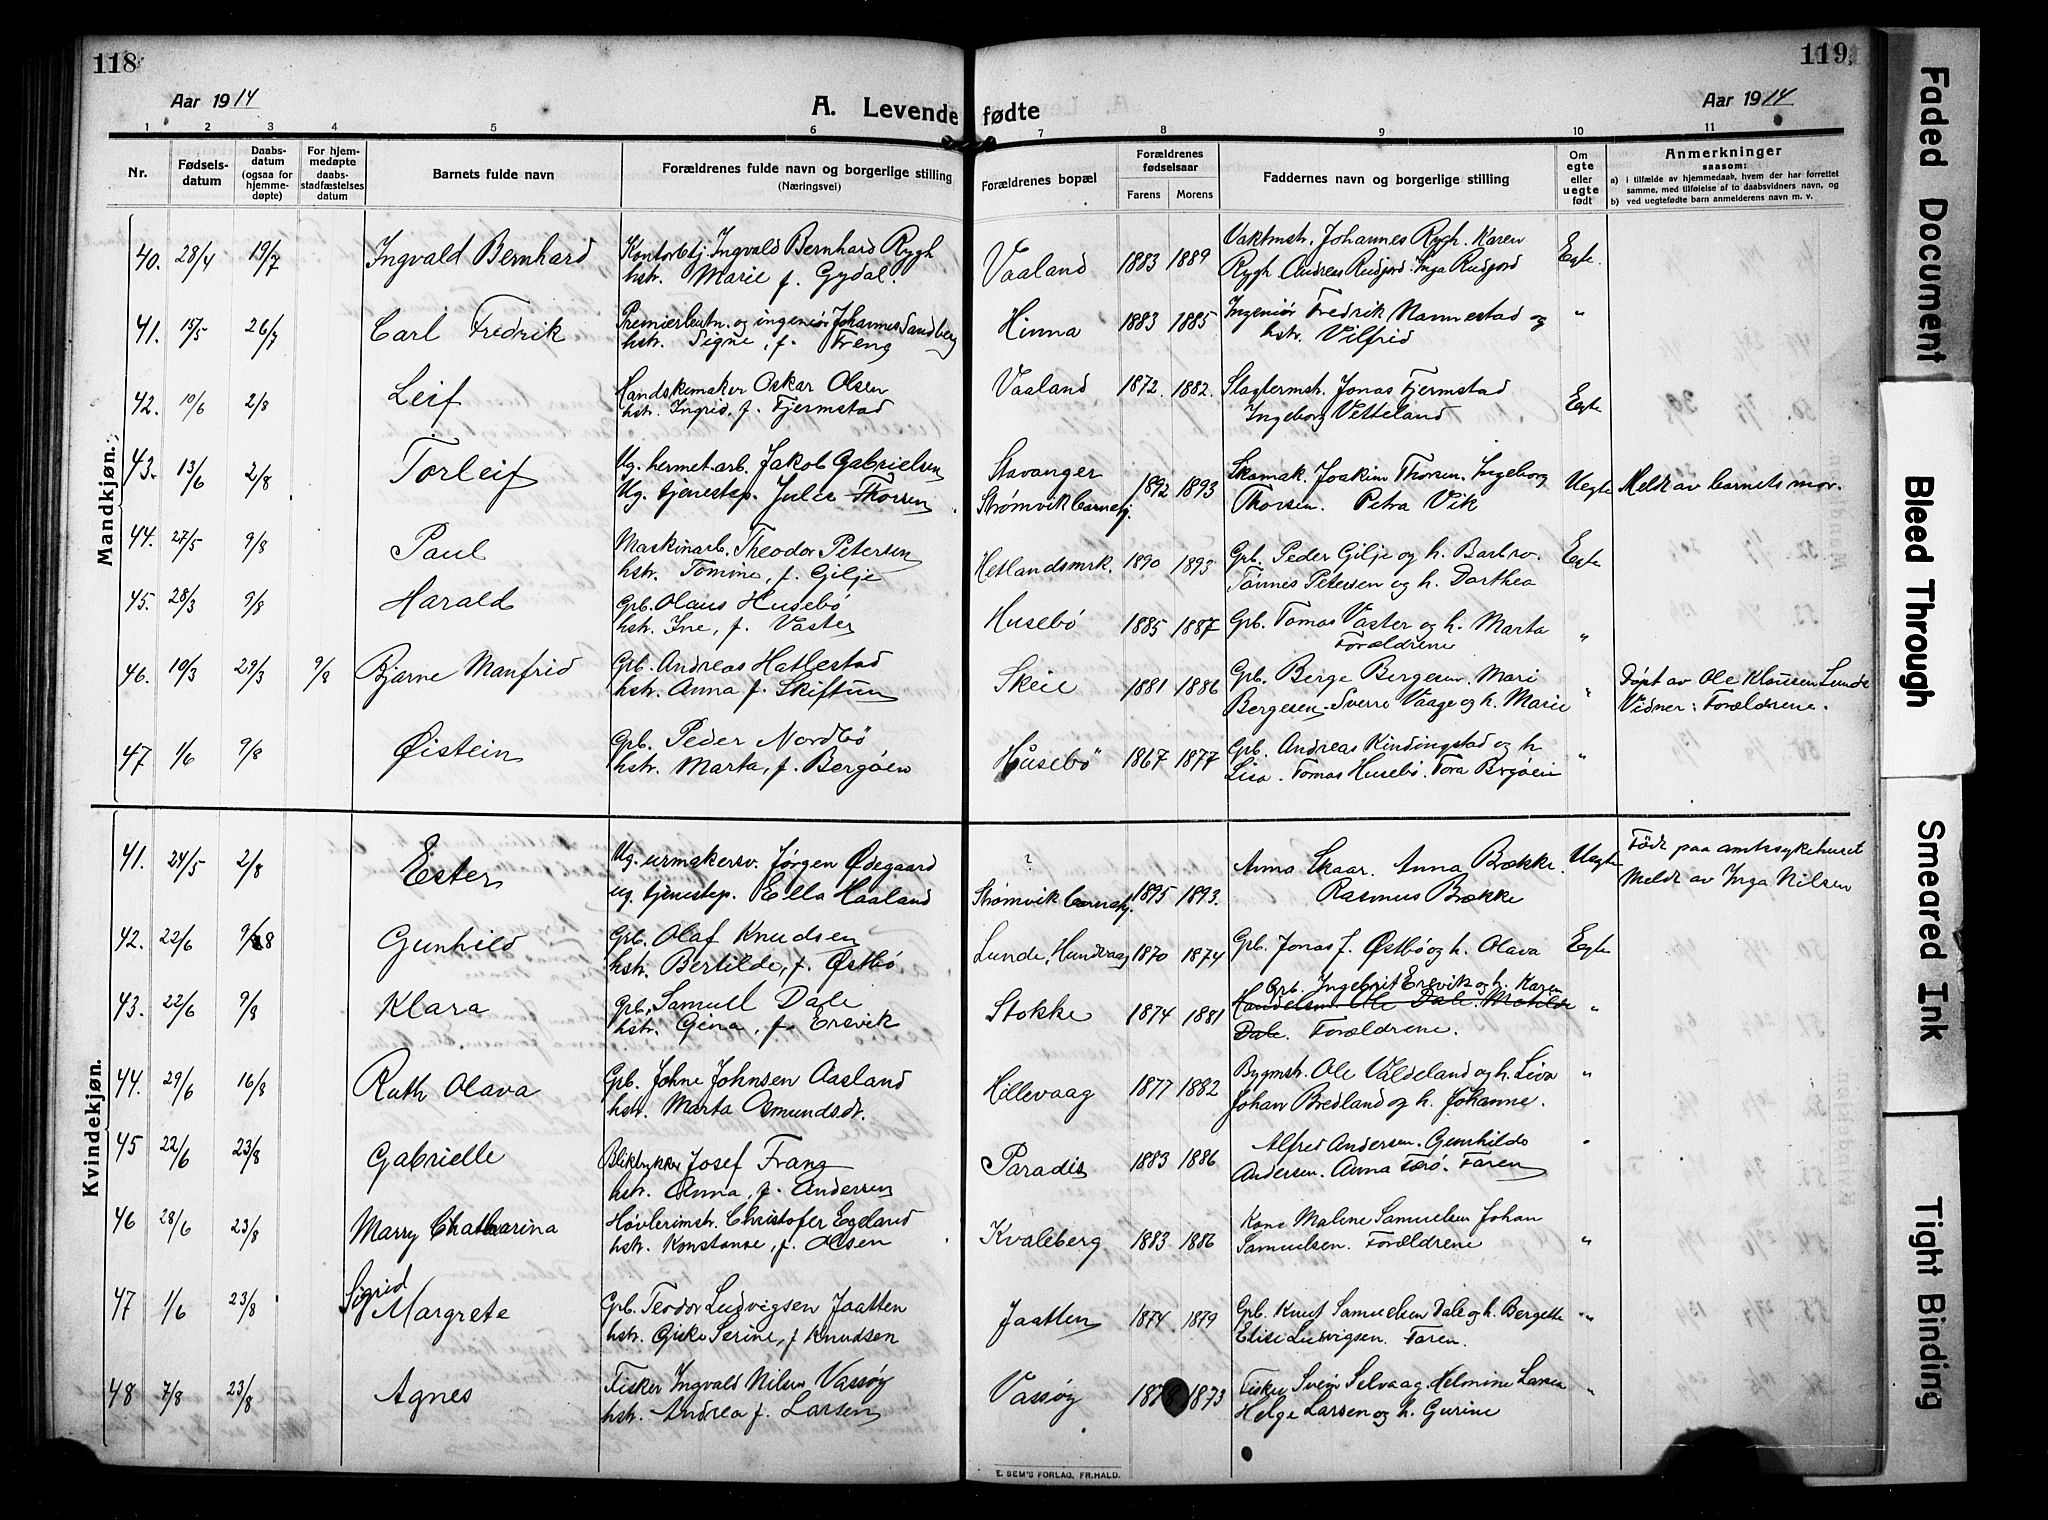 118
119
Aar 1914
A. Levende fødte
Aar 1914
1 2 3 4 5 6 7 8 9 10 11
Nr.
Fødsels-datum
Daabs-datum (ogsaa for hjemme-døpte)
For hjem-medøpte daabs-stadfæstelses datum
Barnets fulde navn
Forældrenes fulde navn og borgerlige stilling (Næringsvei)
Forældrenes bopæl
Forældrenes fødselsaar
Farens Morens
Faddernes navn og borgerlige stilling
Om egte eller uegte født
Anmerkninger
saasom:
a) i tilfælde av hjemmedaab, hvem der har forrettet samme, med tilføielse af to daabsvidners navn, og
b) ved uegtefødte barn anmelderens navn m. v.
Mandkjøn.
40. 28/4 19/7 Ingvald Bernhard Kontorbtj Ingvald Bernhard Rygh Vaaland 1883 1889 Vaktmstr. Johannes Rygh. Karen Egte.
hstr. Marie f. Gydal. Rygh Andreas Rudjord. Inga Rudjord
41. 15/5 26/7 Carl Fredrik Premierleutn. og ingeniør Johannes Sandberg Hinna 1883 1885 Ingeniør Fredrik Nannestad og "
hstr. Signe, f. Treng hstr. Vilfrid
42. 10/6 2/8 Leif Handskemaker Oskar Olsen Vaaland 1872 1882. Slagtermstr. Jonas Tjermstad Egte
hstr. Ingrid, f. Tjermstad Ingeborg Vetteland
43. 13/6 2/8 Torleif Ug. hermet.arb. Jakob Gabrielsen Stavanger 1892 1893 Skomak. Joakim Thorsen. Ingeborg Uegte Meldt av barnets mor.
Ug. tjenestep. Julie Thorsen Strømvik barnehj. Thorsen. Petra Vik
44. 27/5 9/8 Paul Maskinarb. Theodor Petersen Hetlandsmrk. 1890 1893 Grb. Peder Gilje og h. Barbro. Egte
hstr. Tomine, f. Gilje Tønnes Petersen og h. Dorthea
45. 28/3 9/8 Harald Grb. Olaus Husebö Husebö 1885 1887 Grb. Tomas Vaster og h. Marta "
hstr. Ine, f. Vaster Forældrene
46. 10/3 29/3 9/8 Bjarne Manfrid Grb. Andreas Hatlestad Skeie 1881 1886 Grb. Berge Bergesen. Mari " Döpt av Ole Klausen Lunde
hstr. Anna f. Skiftun Bergesen. Sverre Vaage og h. Marie Vidner: Forældrene.
47 1/6 9/8 Øistein Grb. Peder Nordbö Husebö 1867 1877 Grb. Andreas Kindingstad og h. "
hstr. Marta, f. Bergöen Lisa. Tomas Husebö. Tora Brgöen
Kvindekjøn.
41. 24/5 2/8 Ester Ug. urmakersv. Jørgen Ødegaard ? 1895 1893. Anna Skaar. Anna Brække. Uegte Född paa amtssykehuset
ug. tjenestep. Ella Haaland Strømvik barnehj. Rasmus Brække Meldt av Inga Nilsen
42. 22/6 9/8 Gunhild Grb. Olaf Knudsen Lunde, Hundvaag 1870 1874 Grb. Jonas J. Østbö og h. Olava Egte
hstr. Bertilde, f. Østbö
43. 22/6 9/8 Klara Grb. Samuel Dale Stokke 1874 1881 Grb. Ingebrit Ersvik og h. Karen "
hstr. Gina, f. Ersvik Handelsm. Ole Dale. Matilde
Dale. Forældrene.
44. 29/6 16/8 Ruth Olava Grb. Johne Johnsen Aasland Hillevaag 1877 1882 Bygmstr. Ole Valdeland og h. Liva "
hstr. Marta Osmundsdr. Johan Bredland og h. Johanne.
45 22/6 23/8 Gabrielle Bliktrykker Josef Franz Paradis 1883 1886 Alfred Andersen. Gunhilde "
hstr. Anna, f. Andersen Andersen. Anna Tærö. Faren
46 28/6 23/8 Marry Chatharina Høvlerimstr. Christofer Egeland Kvaleberg 1883 1886 Kone Malene Samuelsen Johan "
hstr. Konstanse, f. Olsen Samuelsen. Forældrene
47 1/6 23/8 Sigrid Margrete Grb. Teodor Ludvigsen Jaatten Jaatten 1874 1879 Grb. Knut Samuelsen Dale og h. Bergette "
hstr. Giske Serine, f Knudsen Elise Ludvigsen. Faren.
48 7/8 23/8 Agnes Fisker Ingvald Nilsen Vassöy Vassöy 1873 Fisker Svein Selvaag. Helmine Larsen "
hstr. Andrea f. Larsen Helge Larsen og h. Gurine
E. SEM'S FORLAG, FR.HALD.
Faded Document
Bleed Through
Smeared Ink
Tight Binding